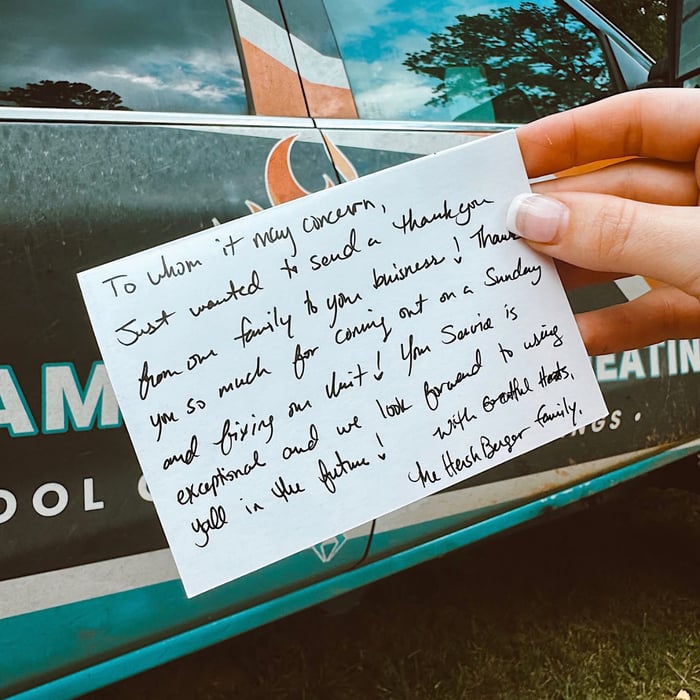 To whom it may concern,
Just wanted to send a thankyou
from our family to your buisness! Thank
you so much for coming out on a Sunday
and fixing our Unit! Your Service is
exceptional and we look forward to using
yall in the future!
With Grateful Hearts,
The HershBerger Family.
AM
EATIN
OOL
NGS.